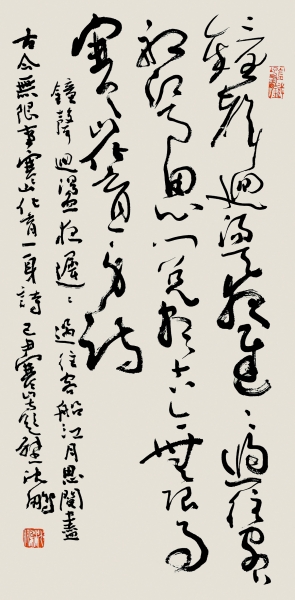 鐘聲迴盪夜遲〻過往客
船江月思閱盡古今無限事
寒山化育一身詩
鐘聲迴盪夜遲〻過往客船江月思閱盡
古今無限事寒山化育一身詩己丑寒山寺題壁沈鵬